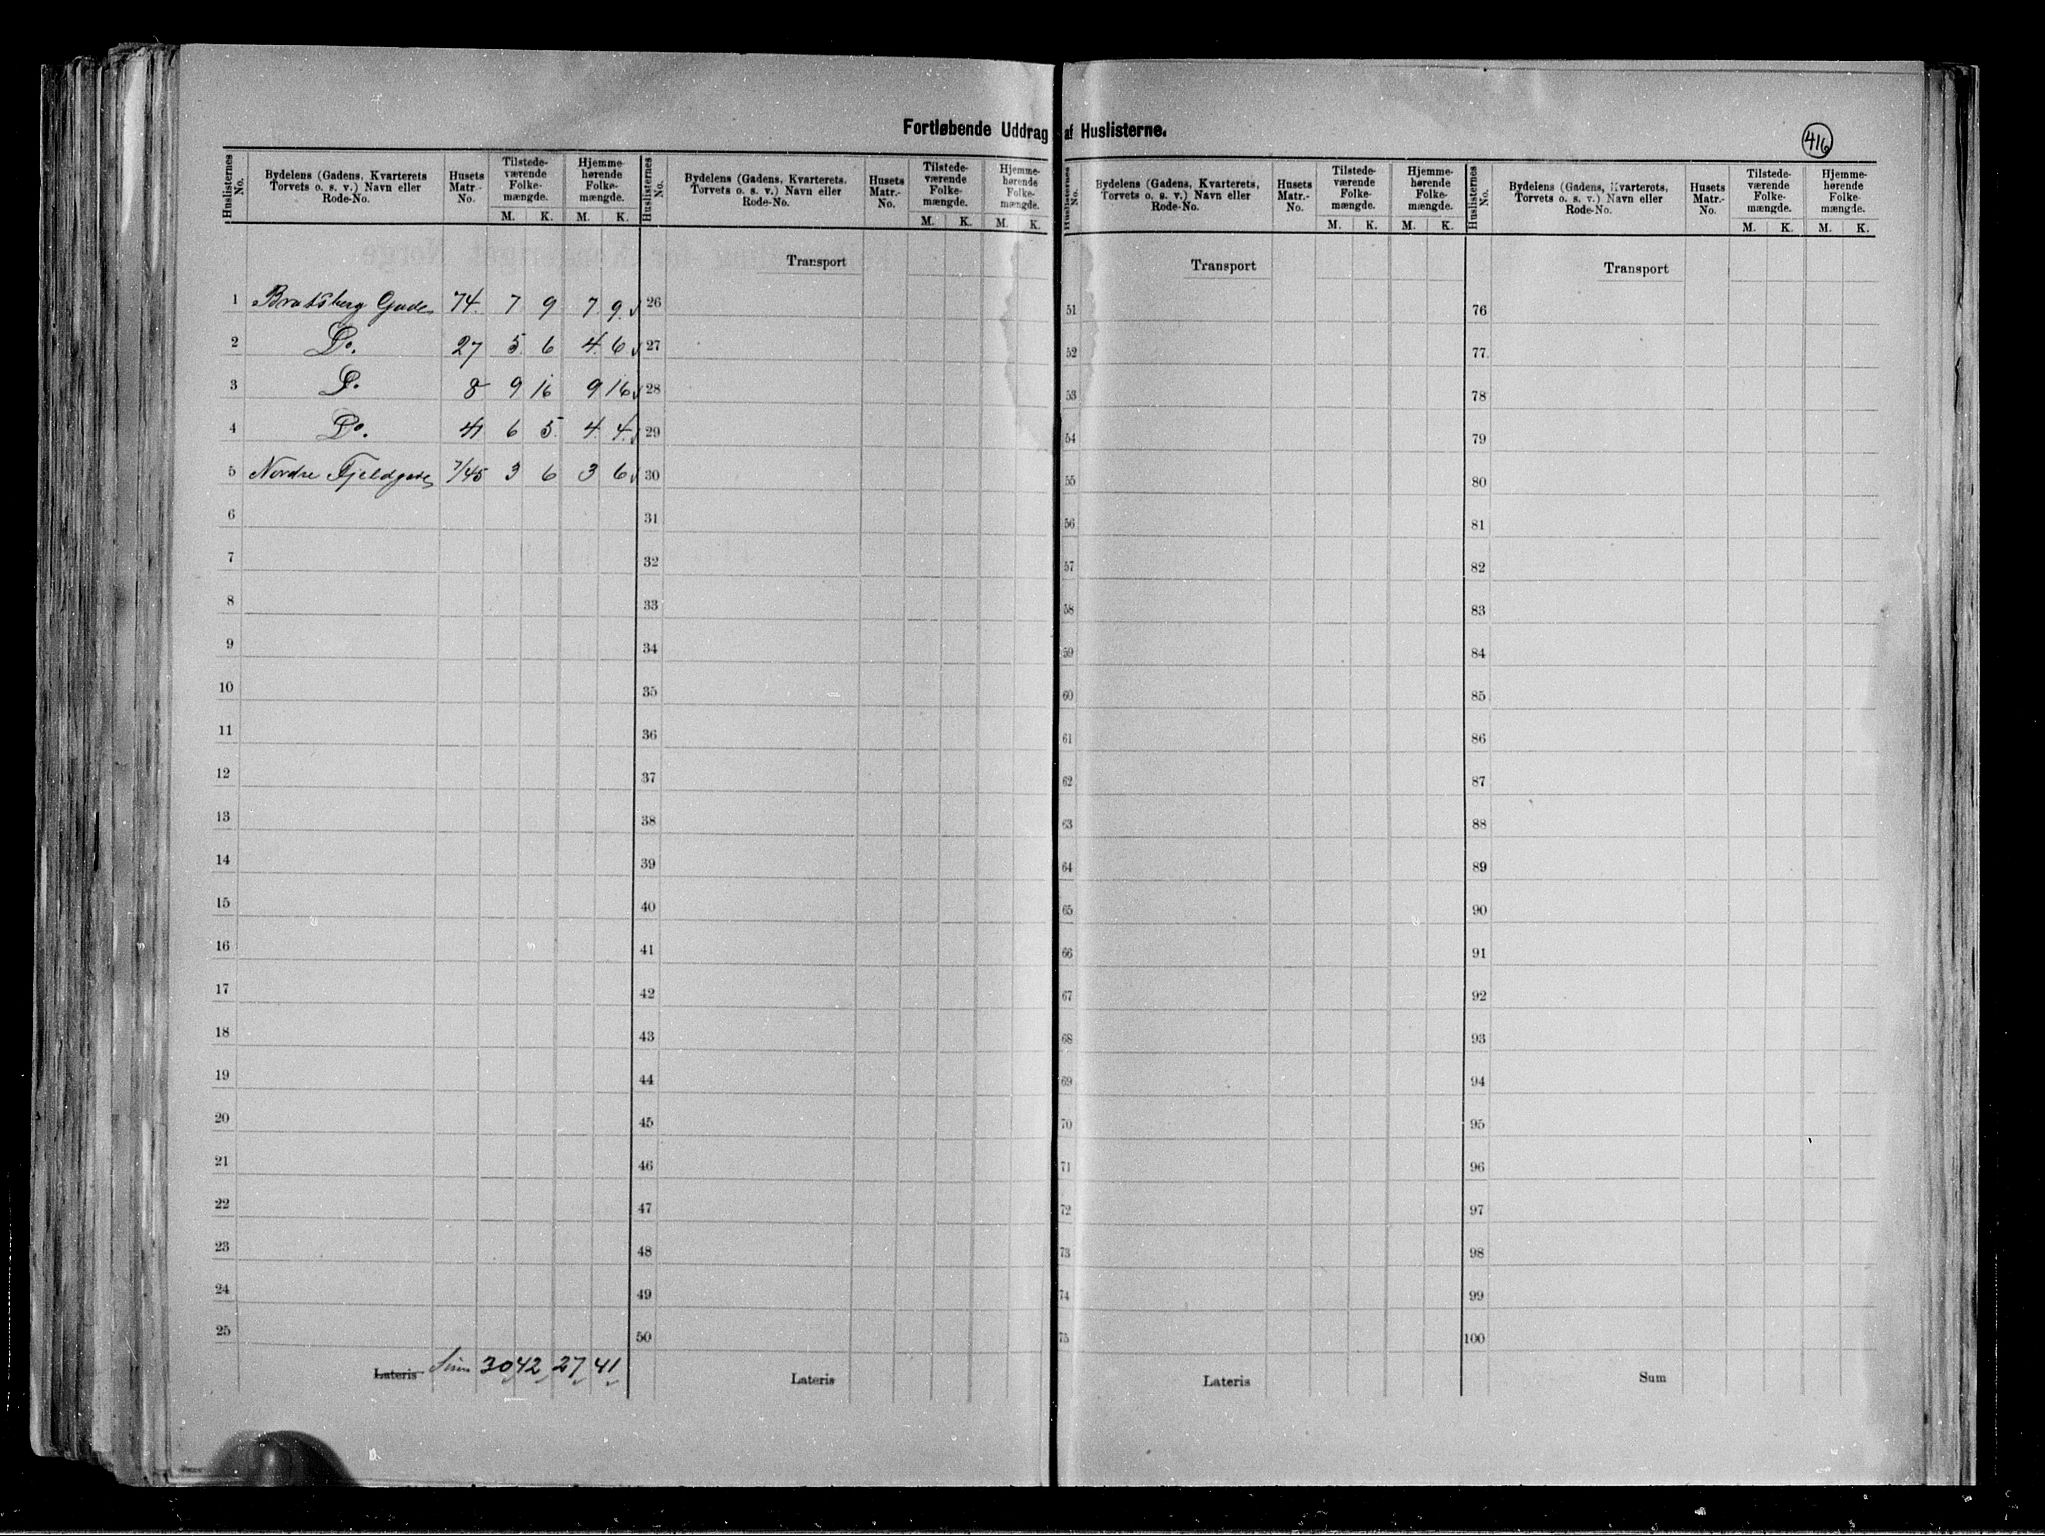 Fortløbende Uddrag af Huslisterne.
416
Huslisternes No. | Bydelens (Gadens, Kvarterets, Torvets o. s. v.) Navn eller Rode-No. | Husets Matr.-No. | Tilstedeværende Folkemængde. M. K. | Hjemmehørende Folkemængde. M. K.
Huslisternes No. | Bydelens (Gadens, Kvarterets, Torvets o. s. v.) Navn eller Rode-No. | Husets Matr.-No. | Tilstedeværende Folkemængde. M. K. | Hjemmehørende Folkemængde. M. K.
Huslisternes No. | Bydelens (Gadens, Kvarterets, Torvets o. s. v.) Navn eller Rode-No. | Husets Matr.-No. | Tilstedeværende Folkemængde. M. K. | Hjemmehørende Folkemængde. M. K.
Huslisternes No. | Bydelens (Gadens, Kvarterets, Torvets o. s. v.) Navn eller Rode-No. | Husets Matr.-No. | Tilstedeværende Folkemængde. M. K. | Hjemmehørende Folkemængde. M. K.
Transport Transport Transport
1 Bratsberg Gade 74. 7 9 7 9 26 51 76
2 Do. 27 5 6 4 6 27 52 77
3 Do 8 9 16 9 16 28 53 78
4 Do. 41 6 5 4 4 29 54 79
5 Nordre Fjeldgade 7/45 3 6 3 6 30 55 80
6 31 56 81
7 32 57 82
8 33 58 83
9 34 59 84
10 35 60 85
11 36 61 86
12 37 62 87
13 38 63 88
14 39 64 89
15 40 65 90
16 41 66 91
17 42 67 92
18 43 68 93
19 44 69 94
20 45 70 95
21 46 71 96
22 47 72 97
23 48 73 98
24 49 74 99
25 50 75 100
Lateris Sum 30 42 27 41 Lateris Lateris Sum